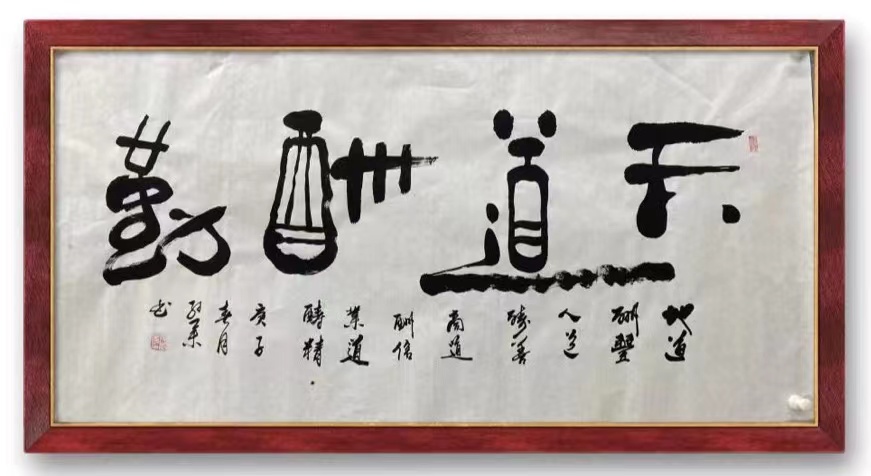 天道酬勤
地道
酬豐
人道
酬善
商道
酬信
業道
酬精
庚子
春月
书